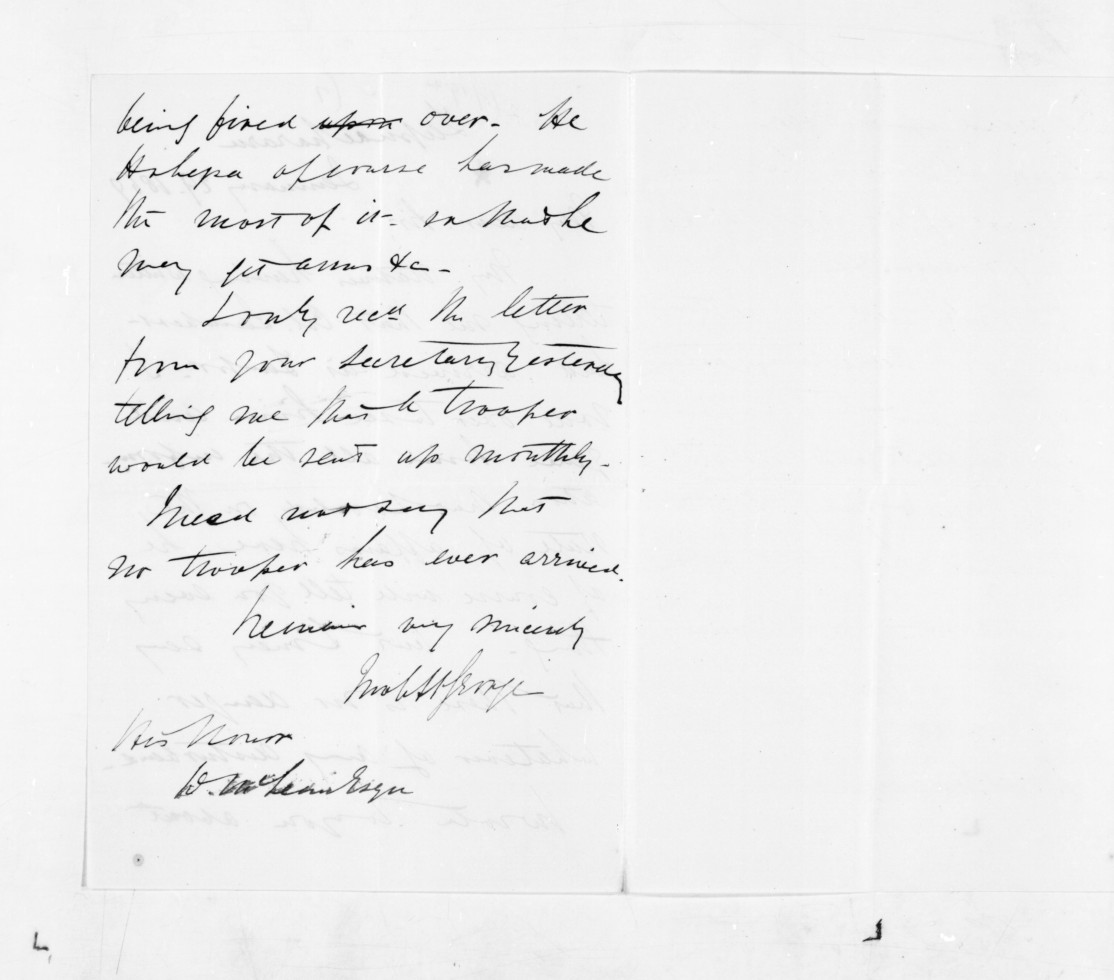 being fired upon over. He
Hohepa of course has made
the most of it - so that he
may get arms &c -
I only recd the letter
from your Secretary yesterday
telling me that a trooper
would be sent up monthly -
I need not say that
no trooper has ever arrived.
I remain very sincerely
St George
His Honor
D. McLean Esqre